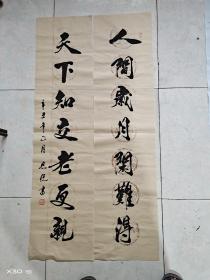 人間歲月閑難得
天下知交老更親
辛丑年六月